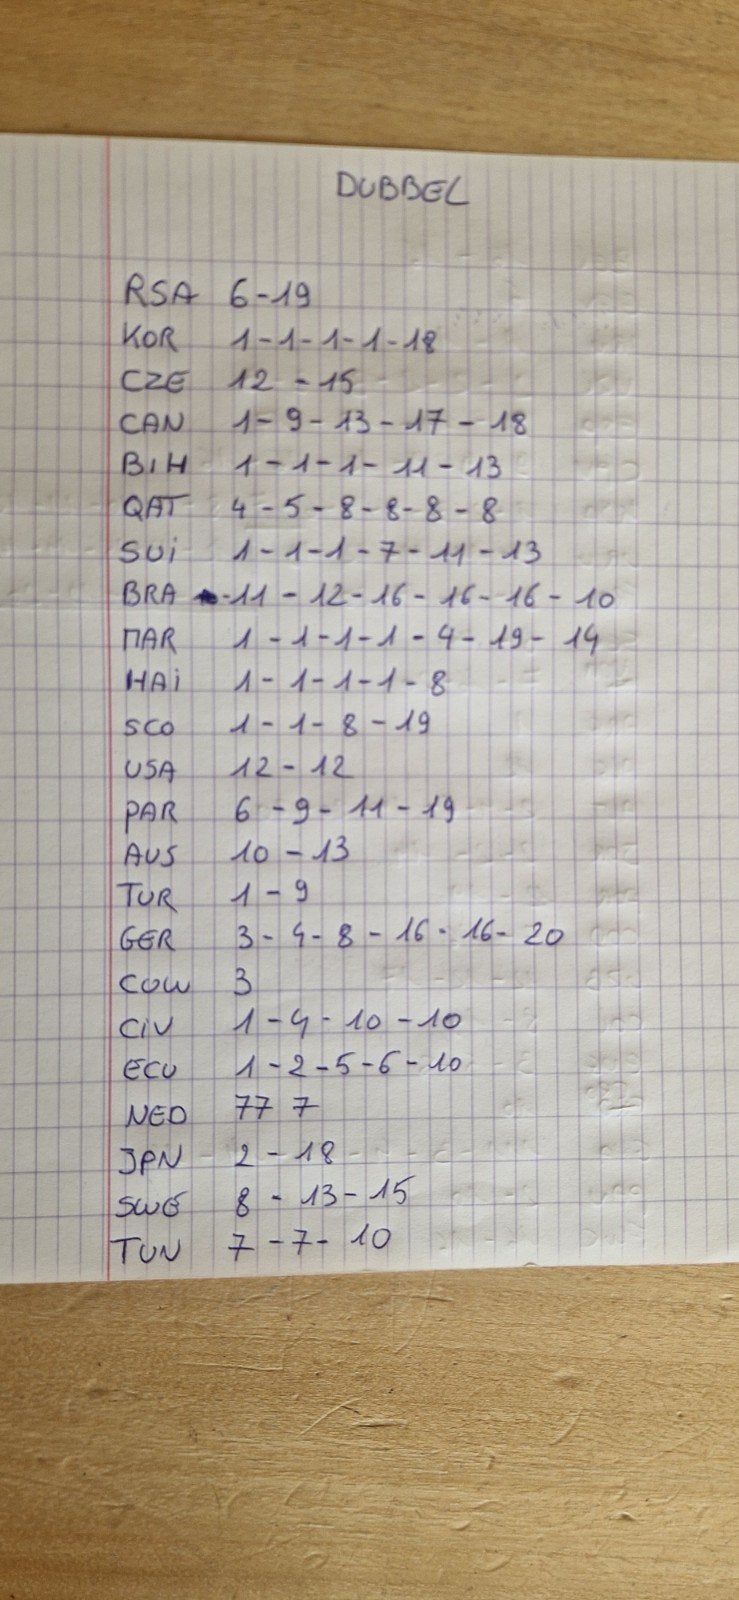 DUBBEL
RSA 6-19
KOR 1-1-1-1-18
CZE 12-15
CAN 1-9-13-17-18
BIH 1-1-1-11-13
QAT 4-5-8-8-8-8
SUi 1-1-1-7-11-13
BRA -11-12-16-16-16-10
MAR 1-1-1-1-4-19-14
HAi 1-1-1-1-8
SCO 1-1-8-19
USA 12-12
PAR 6-9-11-19
AUS 10-13
TUR 1-9
GER 3-4-8-16-16-20
COW 3
CiV 1-4-10-10
ECU 1-2-5-6-10
NED 77 7
JPN 2-18
SWE 8-13-15
TUN 7-7-10